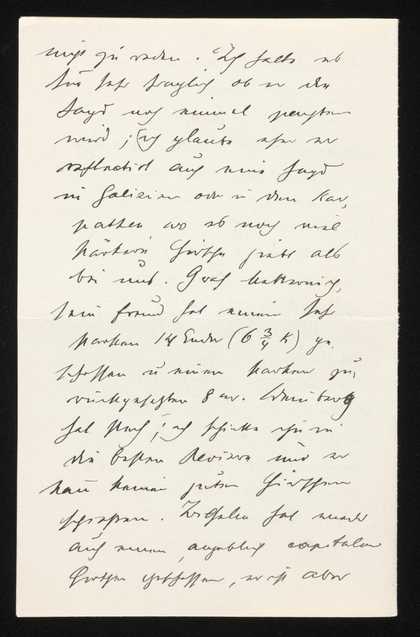 nicht zu reden. Ich halte es
für sehr fraglich ob er die
Jagd noch einmal pachten
wird, ich glaube eher er
reflectirt auf eine Jagd
in Galizien oder in den Kar-
pathen wo es noch viel
stärkere Hirsche giebt als
bei uns. Graf
sein Freund hat einen sehr
starken 14 Ender (6 3/4 K) ge-
schossen u einen starken zu-
rückgesetzten 8 er.
hat Pech, ich schicke ihn in
die besten Reviere und er
kann keinen guten Hirschen
schiessen. hat wieder
auf einen, angeblich capitalen
Hirschen geschossen, er ist aber